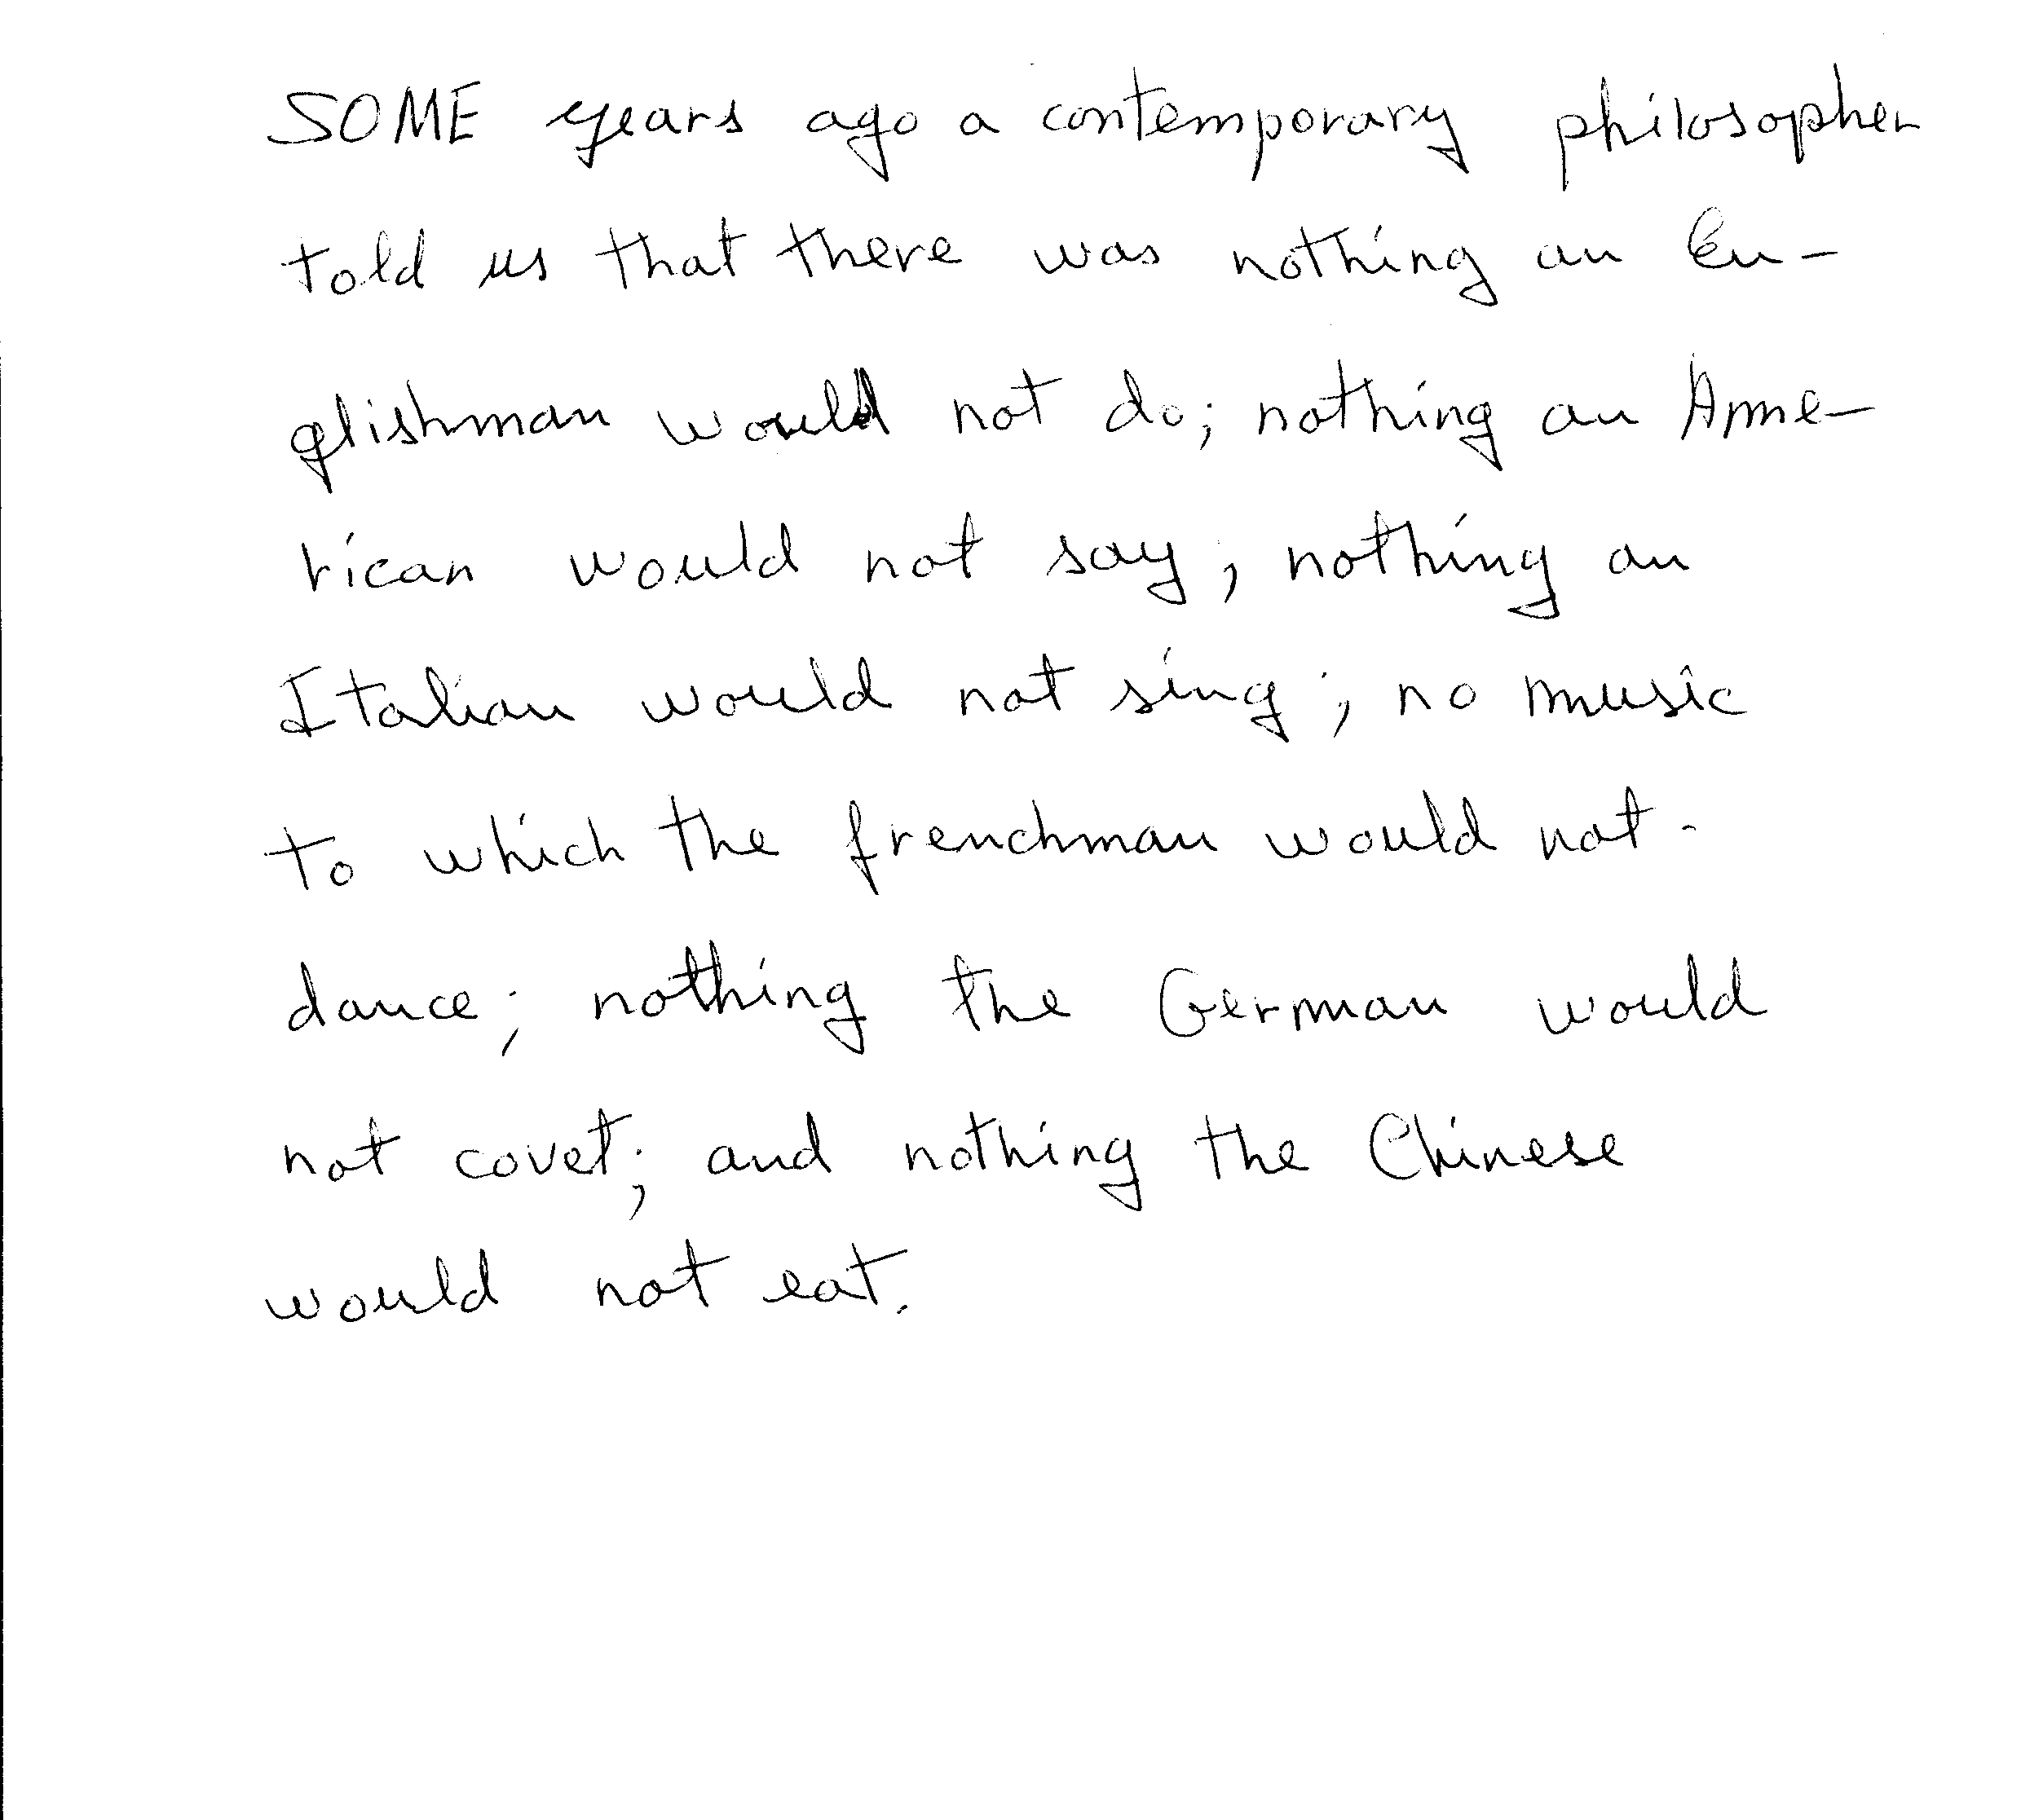 SOME years ago a contemporary philosopher
told us that there was nothing an En-
glishman would not do; nothing an Ame-
rican would not say; nothing an
Italian would not sing; no music
to which the frenchman would not
dance; nothing the German would
not covet; and nothing the Chinese
would not eat.